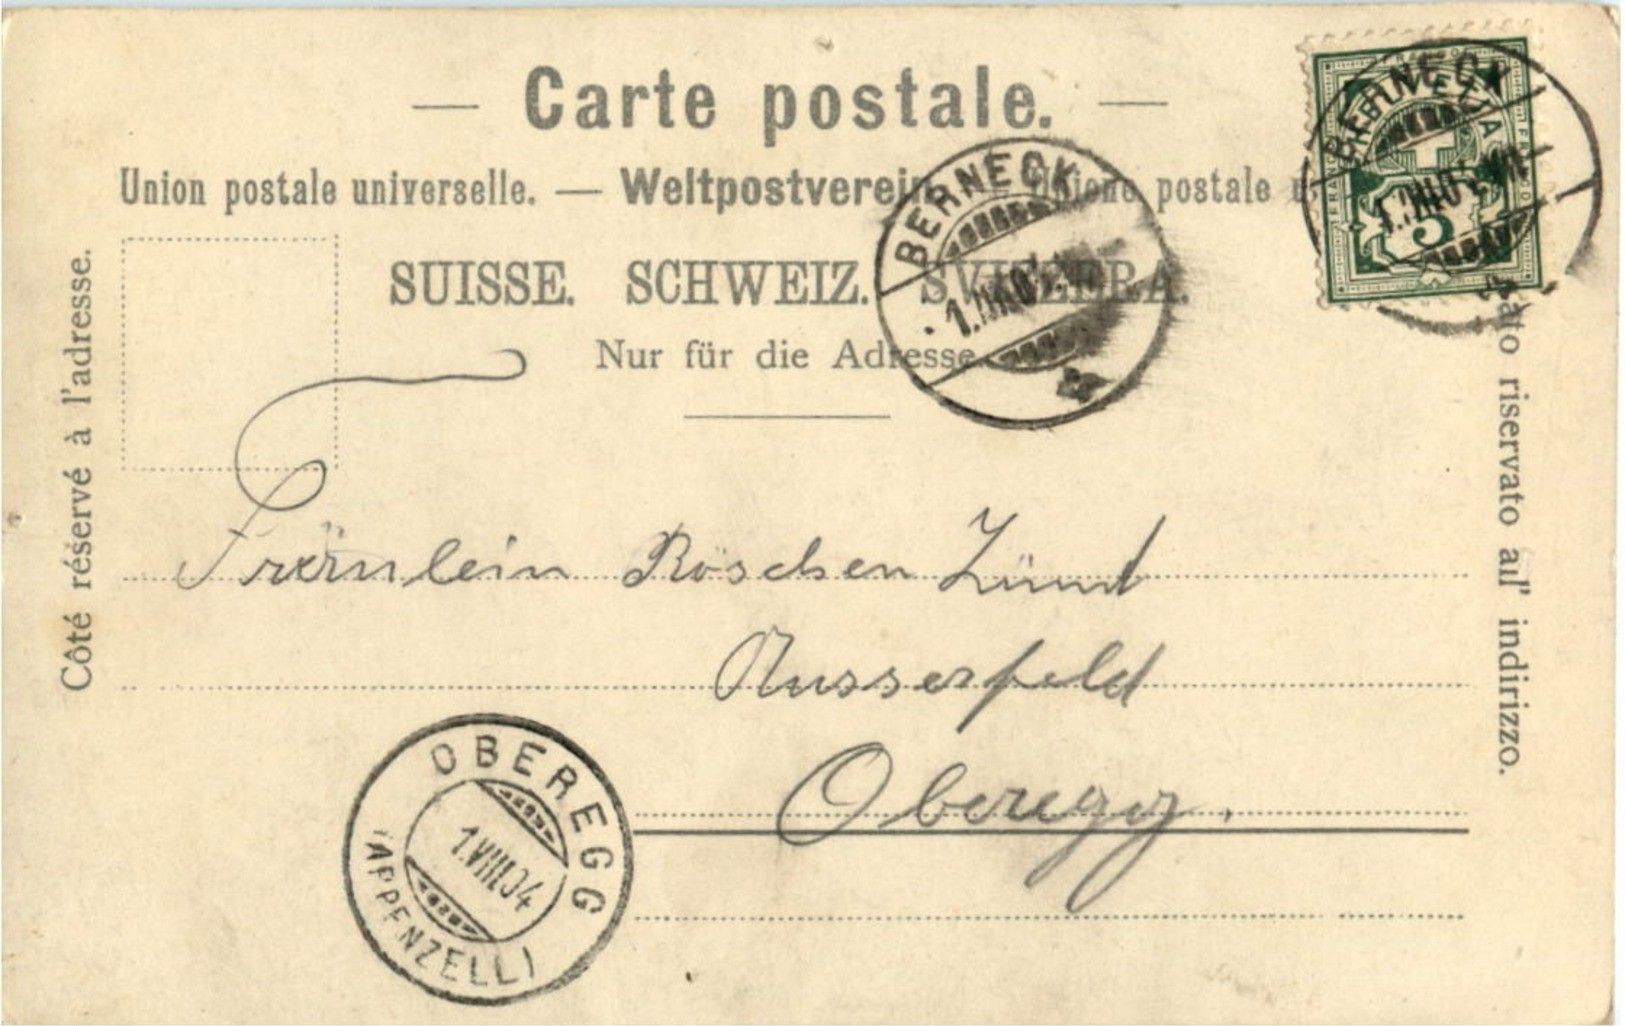 — Carte postale. —
Union postale universelle. — Weltpostverein postale
SUISSE. SCHWEIZ. SVIZZERA.
Nur für die Adresse.
Côté réservé à l'adresse.
riservato all' indirizzo.
BERNECK
1.VIII.04
BERNECK
HELVETIA
FRANCO
5
Fräulein Röschen Zünd
Nusserfeld
Oberegg.
OBEREGG
1.VIII.04
(APPENZELL)